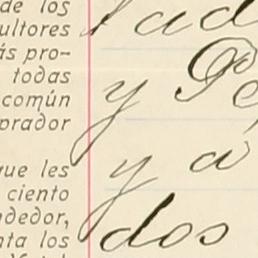 de los
ultores
ás pro-
todas
común
prador
que les
ciento
ndedor,
nta los
y Pe
y á
dos